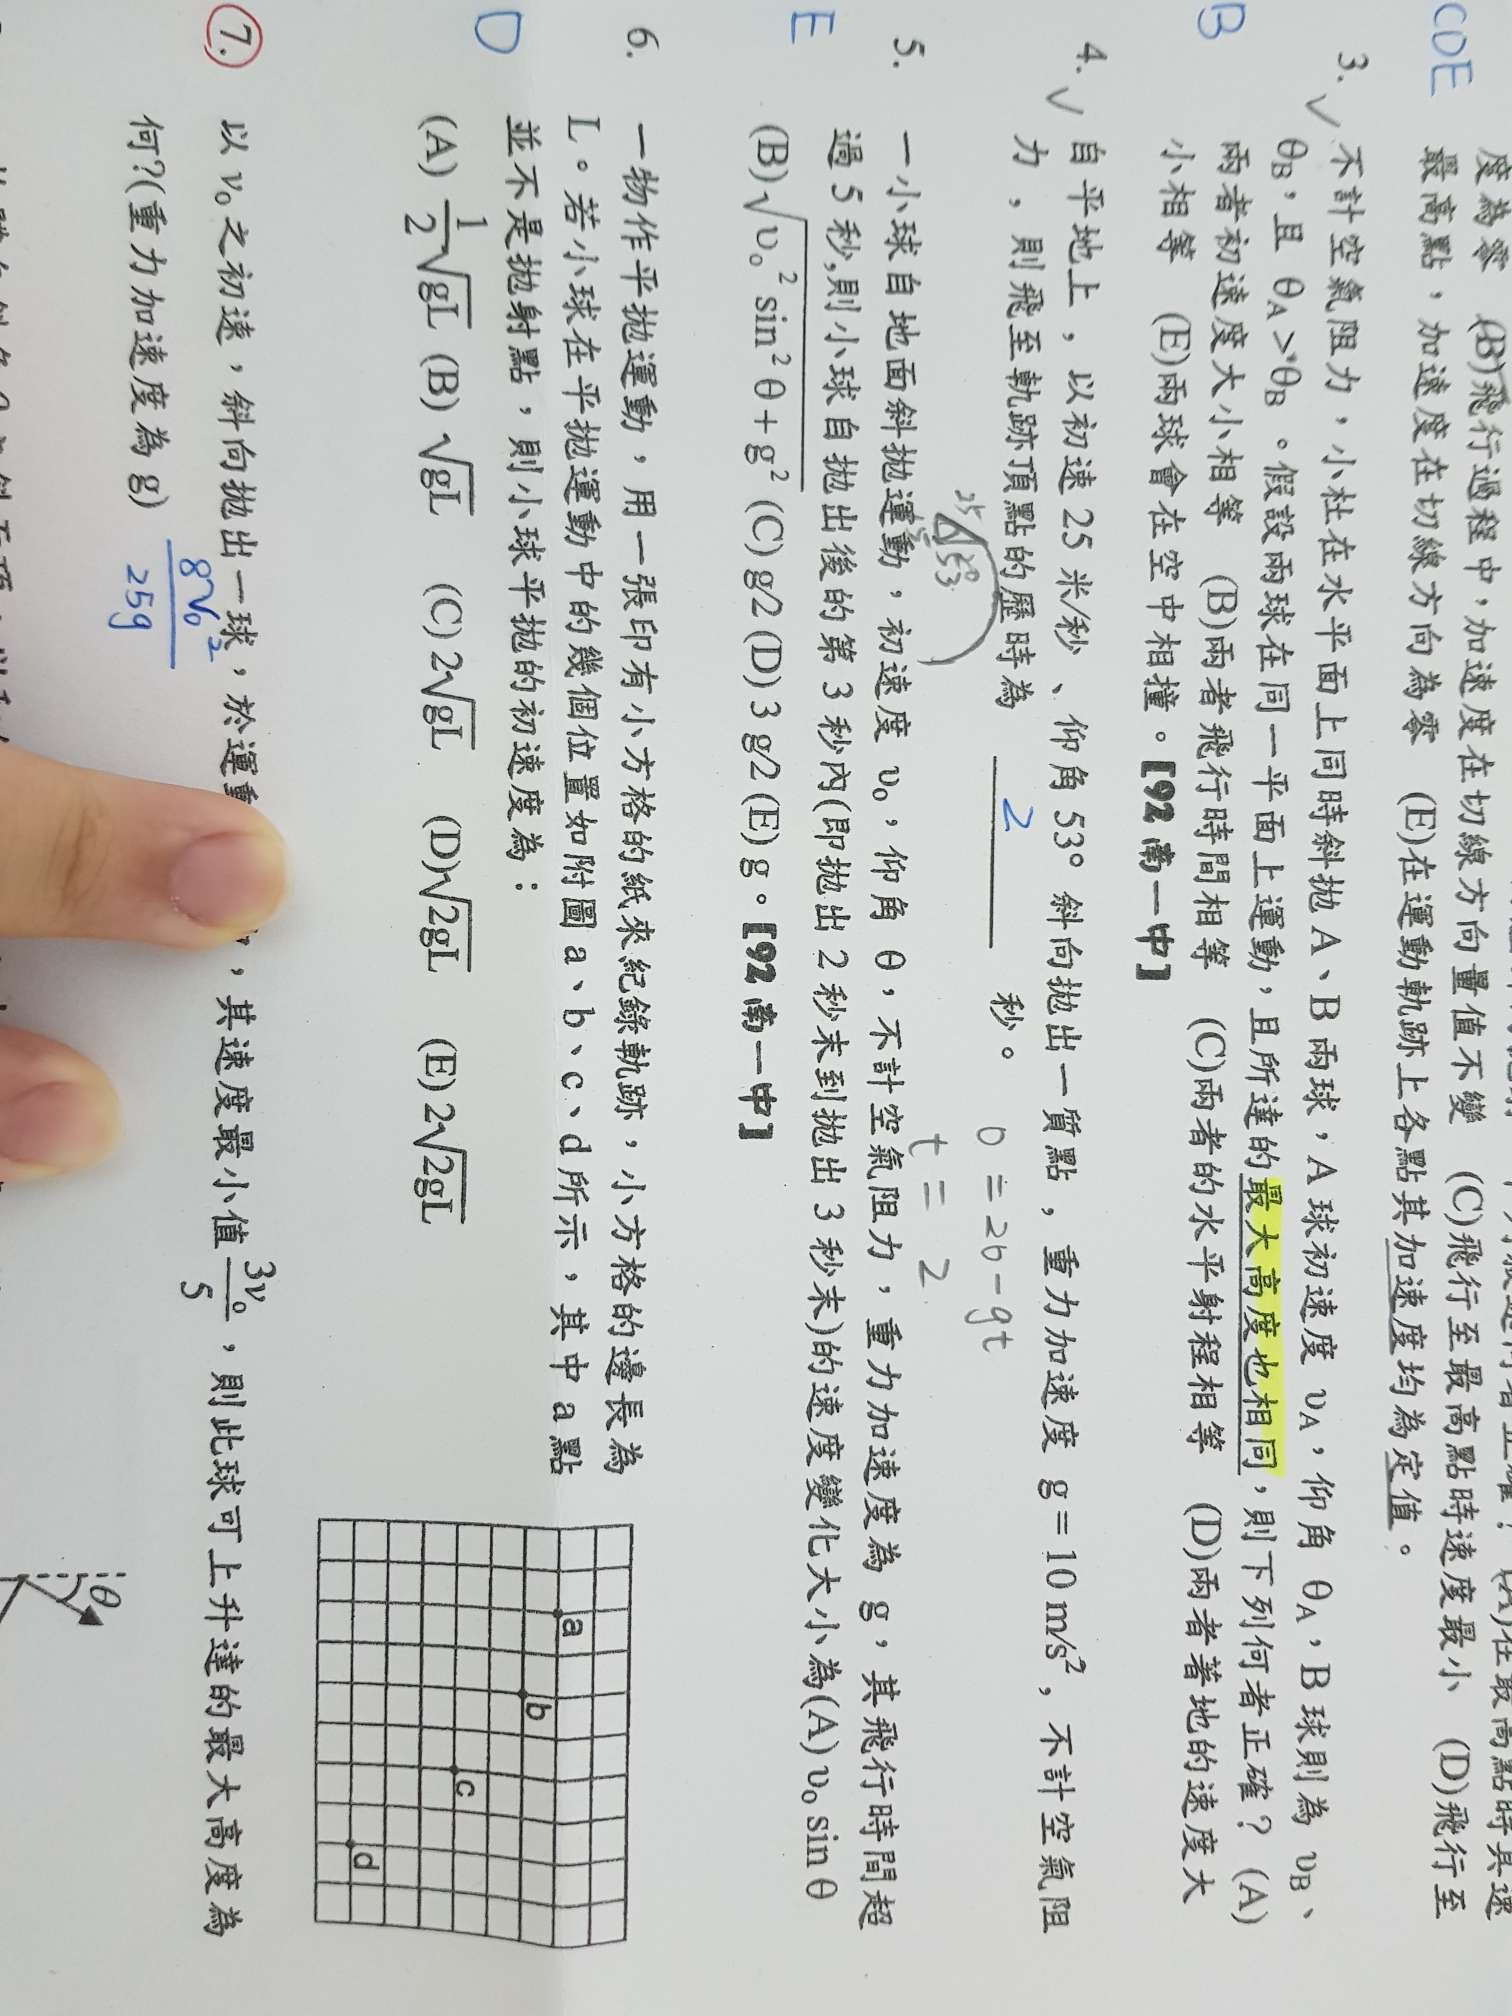 度為零 (B)飛行過程中，加速度在切線方向量值不變 (C)飛行至最高點時速度最小 (D)飛行至
CDE
最高點，加速度在切線方向為零 (E)在運動軌跡上各點其加速度均為定值。
3. 不計空氣阻力，小杜在水平面上同時斜拋 A、B 兩球，A 球初速度 υA，仰角 θA，B 球則為 υB、
θB，且 θA＞θB。假設兩球在同一平面上運動，且所達的最大高度也相同，則下列何者正確？ (A)
B
兩者初速度大小相等 (B)兩者飛行時間相等 (C)兩者的水平射程相等 (D)兩者著地的速度大
小相等 (E)兩球會在空中相撞。【92 南一中】
4. 自平地上，以初速 25 米/秒、仰角 53° 斜向拋出一質點，重力加速度 g＝10 m/s²，不計空氣阻
力，則飛至軌跡頂點的歷時為 2 秒。
25 53°
t = 2
5. 一小球自地面斜拋運動，初速度 υ₀，仰角 θ，不計空氣阻力，重力加速度為 g，其飛行時間超
過 5 秒,則小球自拋出後的第 3 秒內(即拋出 2 秒末到拋出 3 秒末)的速度變化大小為(A) υ₀ sin θ
E
(B)√(υ₀² sin² θ + g²) (C) g/2 (D) 3 g/2 (E) g。【92 南一中】
6. 一物作平拋運動，用一張印有小方格的紙來紀錄軌跡，小方格的邊長為
L。若小球在平拋運動中的幾個位置如附圖 a、b、c、d 所示，其中 a 點
D
並不是拋射點，則小球平拋的初速度為：
(A) 1/2 √gL (B) √gL (C) 2√gL (D)√2gL (E) 2√2gL
a
b
c
d
7. 以 v₀ 之初速，斜向拋出一球，於運，其速度最小值 3v₀/5，則此球可上升達的最大高度為
何?(重力加速度為 g) 8v₀²/25g
θ